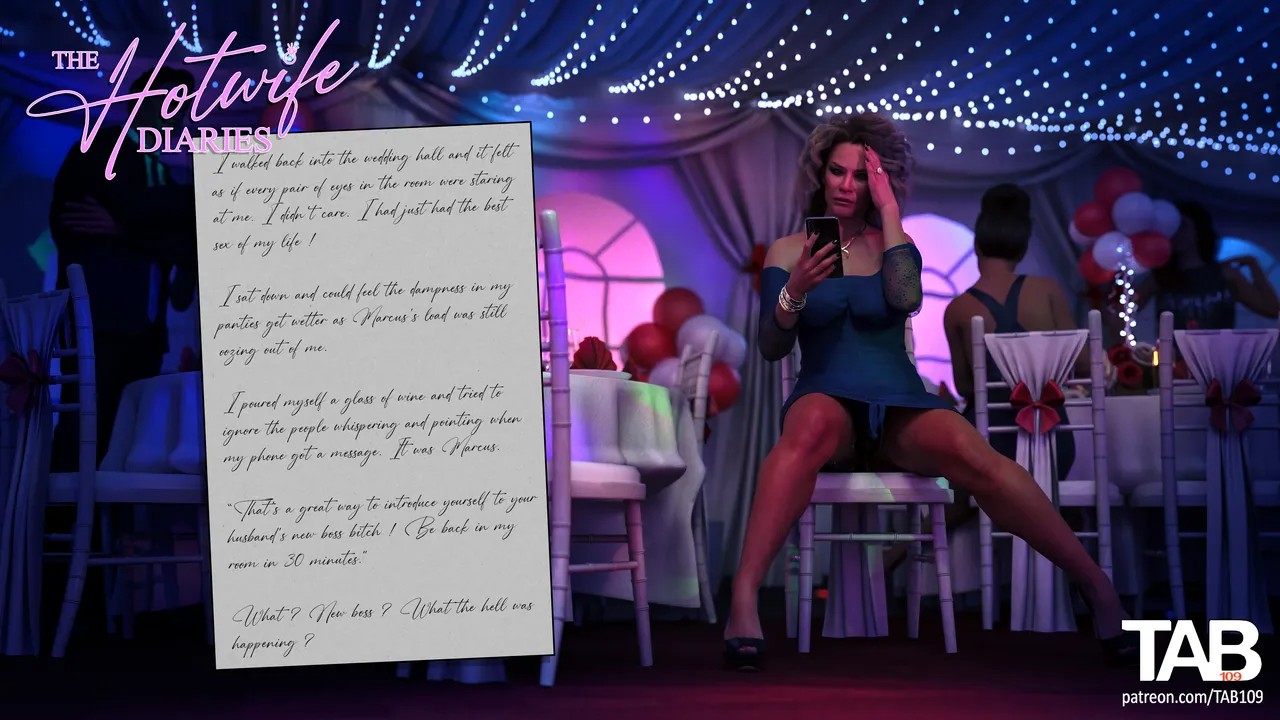 THE
Hotwife
DIARIES
I walked back into the wedding hall and it felt
as if every pair of eyes in the room were staring
at me. I didn't care. I had just had the best
sex of my life !
I sat down and could feel the dampness in my
panties get wetter as Marcus's load was still
oozing out of me.
I poured myself a glass of wine and tried to
ignore the people whispering and pointing when
my phone got a message. It was Marcus.
"That's a great way to introduce yourself to your
husband's new boss bitch ! Be back in my
room in 30 minutes."
What ? New boss ? What the hell was
happening ?
TAB
109
patreon.com/TAB109